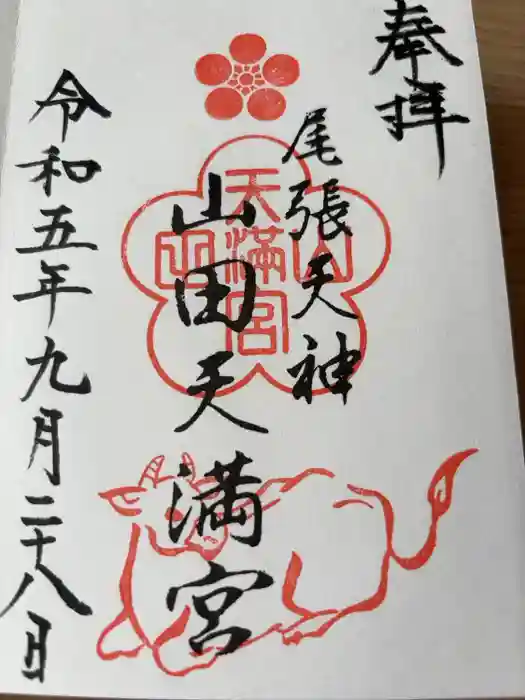 奉拝
尾張天神
山田天満宮
山田
天満宮
令和五年九月二十八日